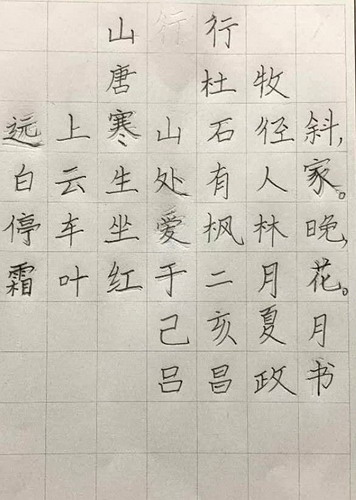 山行
唐 杜牧
远上寒山石径斜,
白云生处有人家。
停车坐爱枫林晚,
霜叶红于二月花。
己亥夏月
吕昌政书